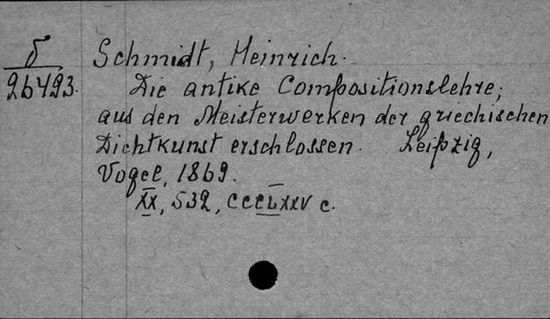 б
26493.
Schmidt, Heinrich.
Die antike Compositionslehre,
aus den Meisterwerken der griechischen
Dichtkunst erschlossen. Leipzig,
Vogel, 1869.
XX, 532, CCCLXXV c.